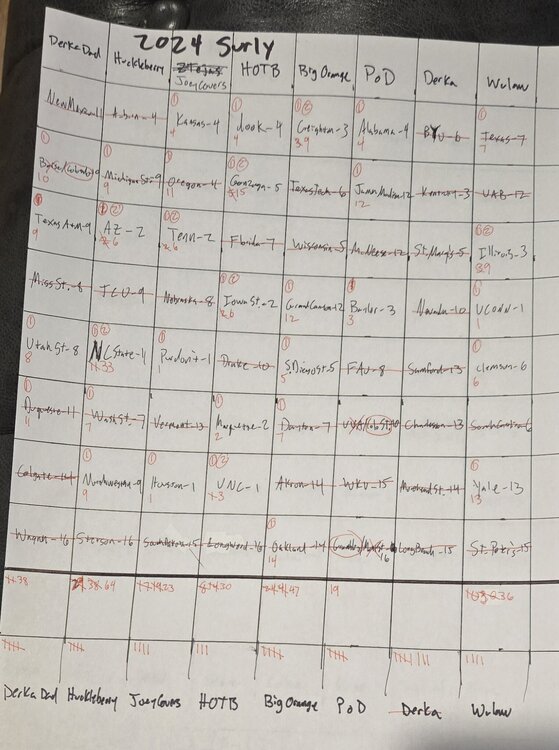 2024 Surly
Derka Dad Huckleberry JoeyCovers HOTB Big Orange PoD Derka Wulaw
New Mexico-11 Auburn-4 Kansas-4 dook-4 Creighton-3 Alabama-4 BYU-6 Texas-7
Boise/Colorado-10 Michigan St.-9 Oregon-11 Gonzaga-5 Texas Tech-6 James Madison-12 Kentucky-3 UAB-12
Texas A+M-9 AZ-2 Tenn-2 Florida-7 Wisconsin-5 McNeese-12 St. Mary's-5 Illinois-3
Miss St.-8 TCU-9 Nebraska-8 Iowa St.-2 Grand Canyon-12 Baylor-3 Nevada-10 UCONN-1
Utah St-8 NC State-11 Purdon't-1 Drake-10 S. Diego St-5 FAU-8 Samford-13 Clemson-6
Duquesne-11 Wash St.-7 Vermont-13 Marquette-2 Dayton-7 UVA/Colo St.-10 Charleston-13 South Carolina-6
Colgate-14 Northwestern-9 Houston-1 UNC-1 Akron-14 WKU-15 Morehead St.-14 Yale-13
Wagner-16 Stetson-16 Longwood-16 Oakland-14 Long Beach-15 St. Pete's-15
38 64 23 30 47 19 36
Derka Dad Huckleberry JoeyCovers HOTB Big Orange PoD Derka Wulaw